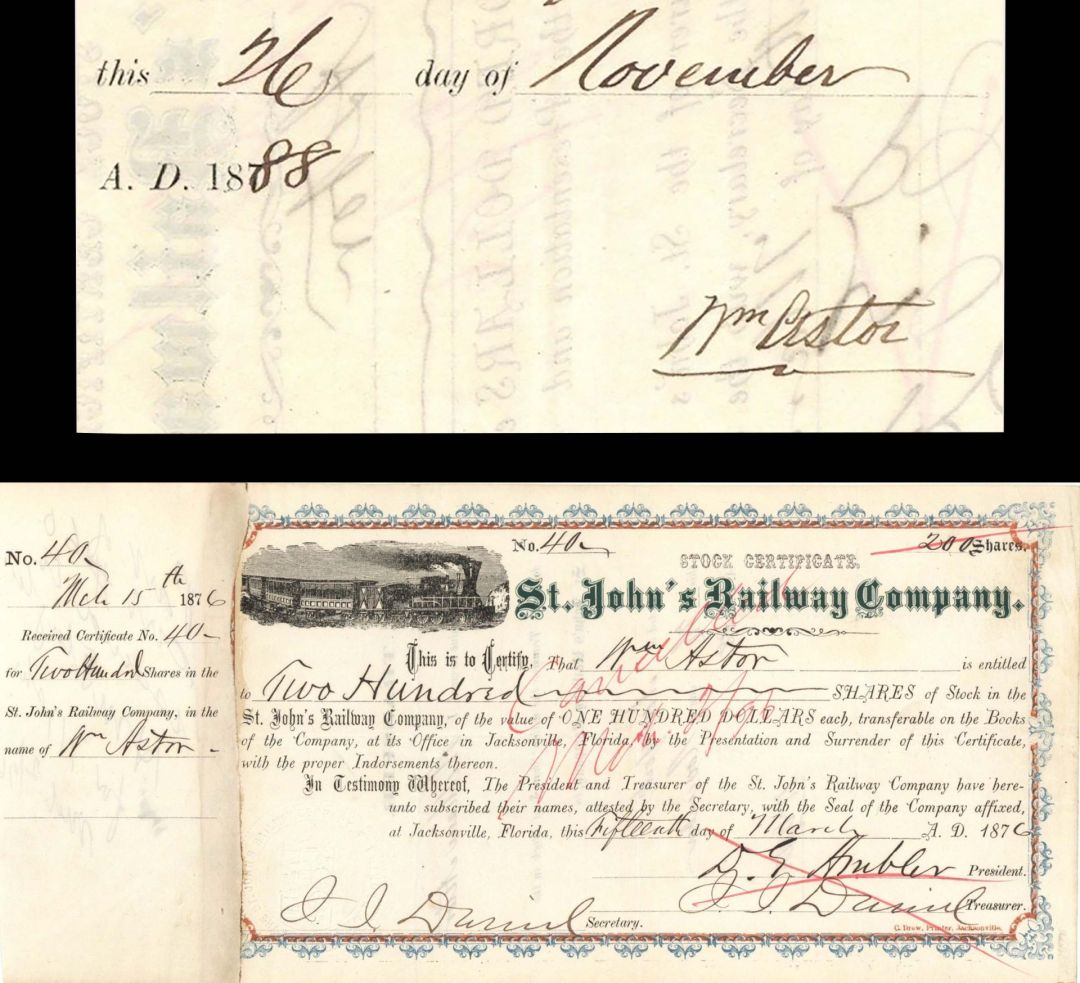 this 26 day of November
A. D. 18788
Wm Astor
No. 40
Mch 15th 1876
Received Certificate No. 40
for Two Hundrd Shares in the
St. John's Railway Company, in the
name of Wm Astor
No. 40 200 Shares.
STOCK CERTIFICATE.
St. John's Railway Company.
This is to Certify, That Wm Astor is entitled
to Two Hundred SHARES of Stock in the
St. John's Railway Company, of the value of ONE HUNDRED DOLLARS each, transferable on the Books
of the Company, at its Office in Jacksonville, Florida, by the Presentation and Surrender of this Certificate,
with the proper Indorsements thereon.
In Testimony Whereof, The President and Treasurer of the St. John's Railway Company have here-
unto subscribed their names, attested by the Secretary, with the Seal of the Company affixed,
at Jacksonville, Florida, this Fifteenth day of March A. D. 1876
D. G. Ambler President.
J. J. Daniel Treasurer.
J. J. Daniel Secretary.
C. Drew, Printer, Jacksonville.
Cancelled